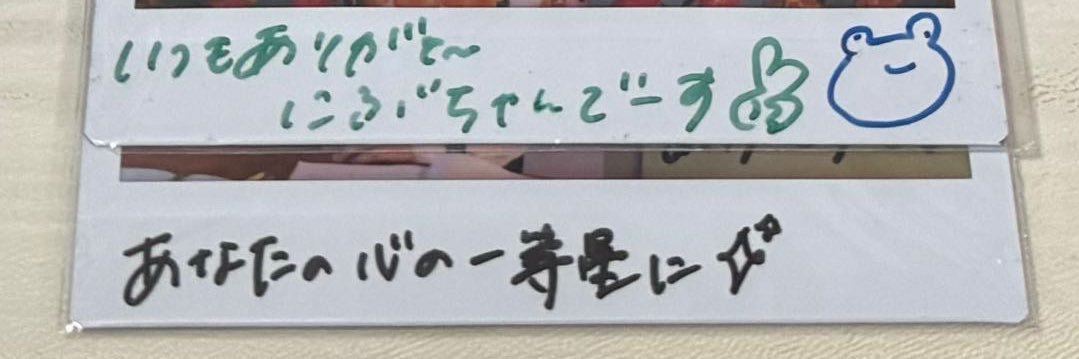 いつもありがと〜
にぶちゃんでーす
あなたの心の一等星に